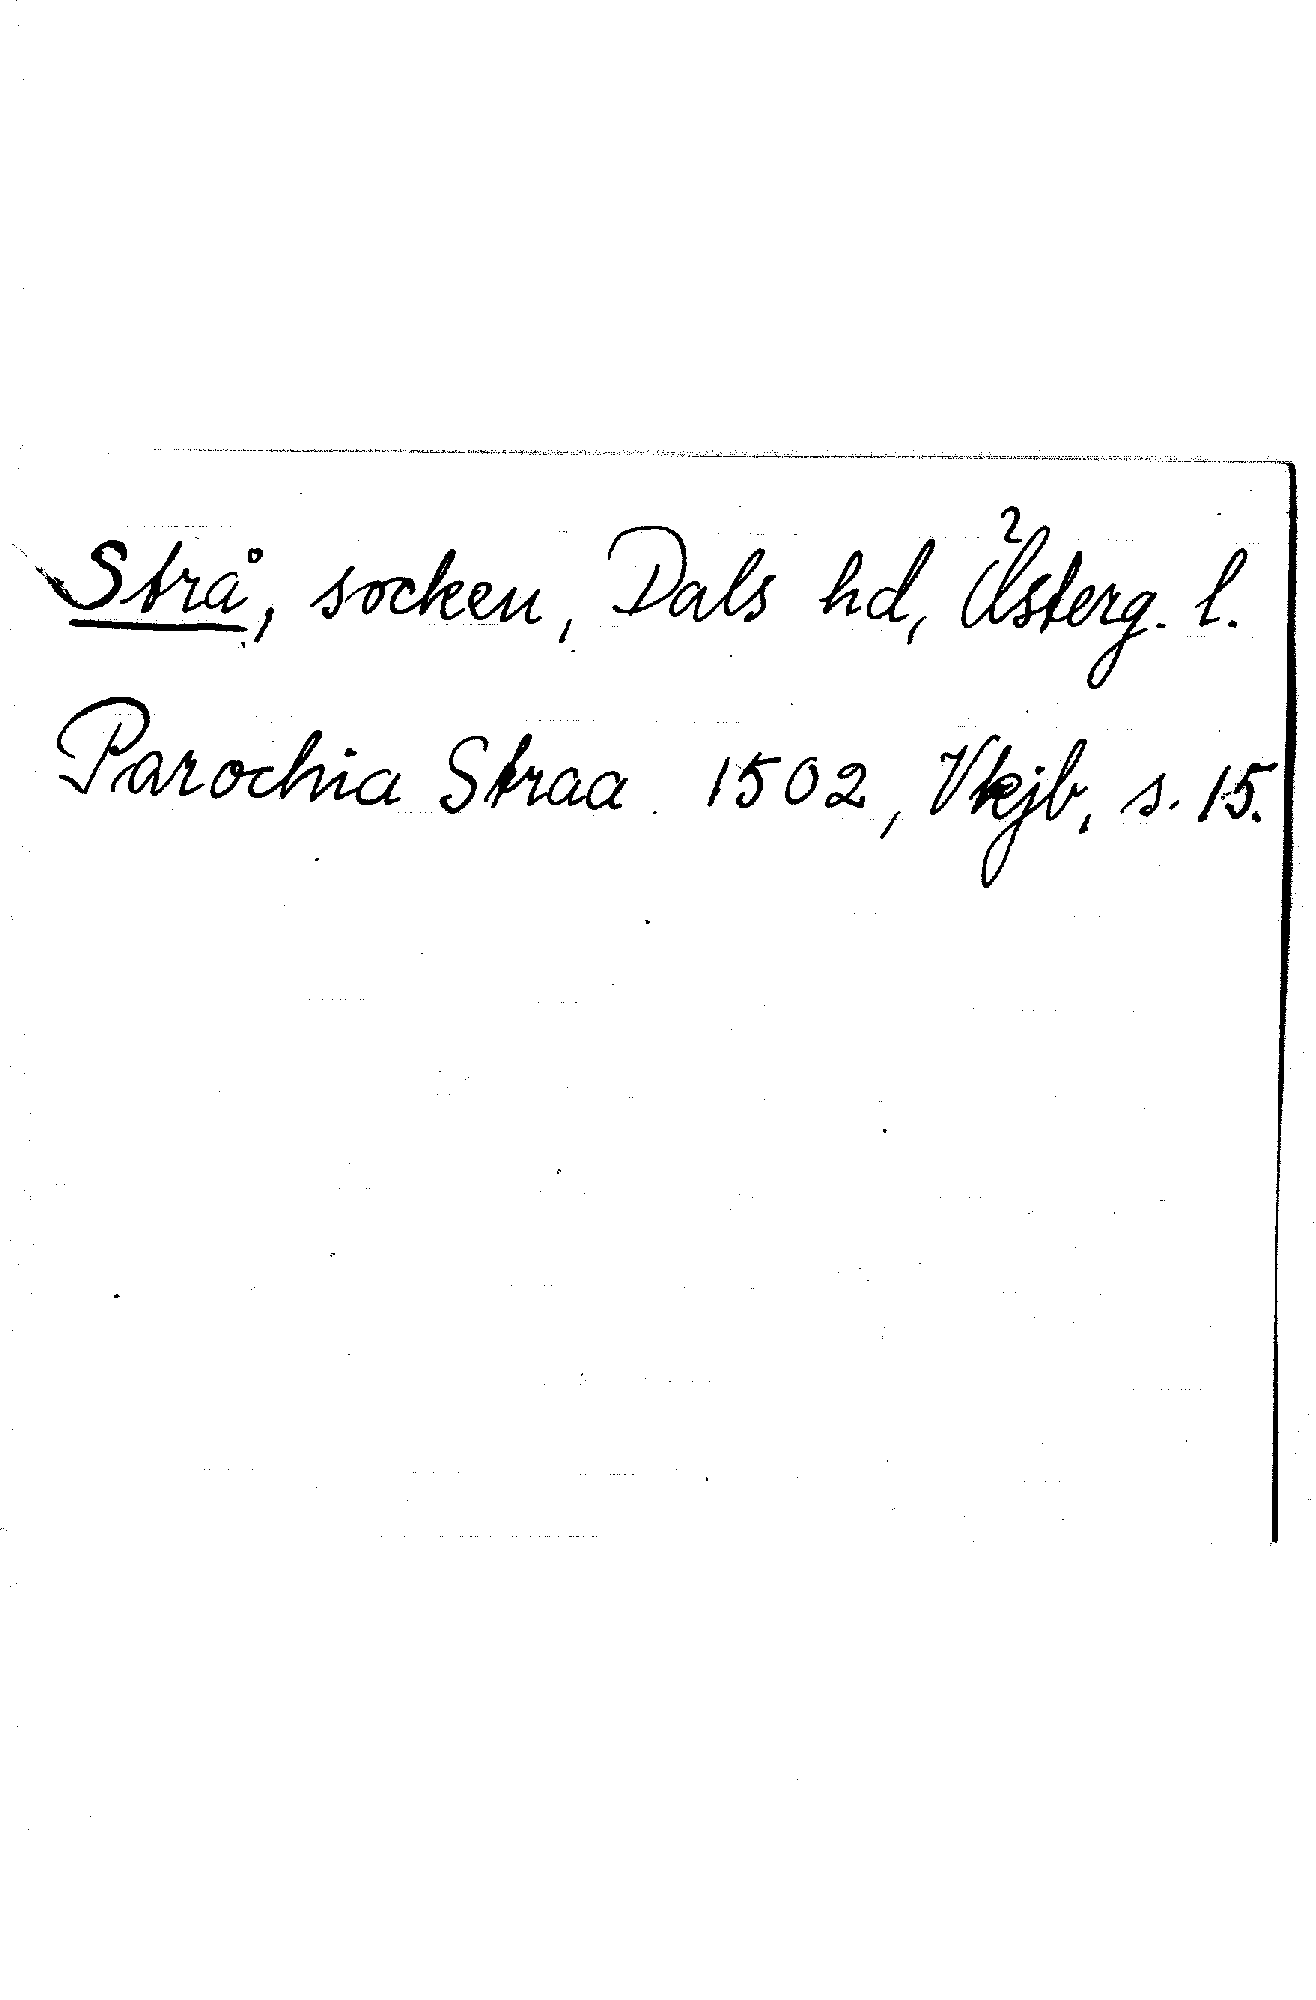 Strå, socken, Dals hd, Österg. l.
Parochia Straa 1502, Vkjb, s. 15.